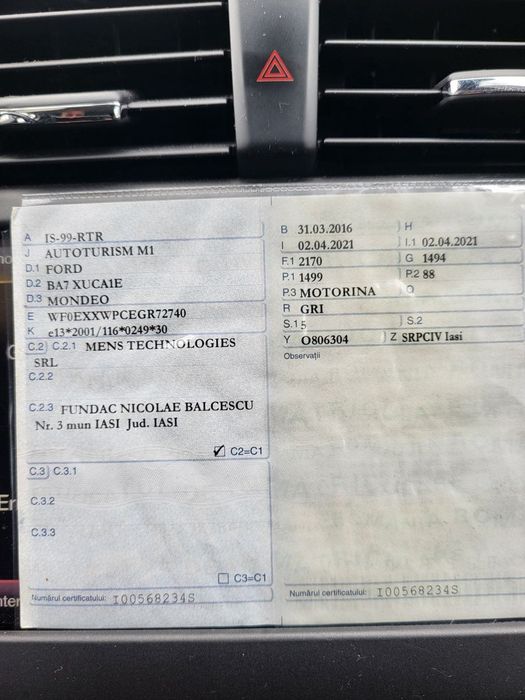 A IS-99-RTR
J AUTOTURISM M1
D.1 FORD
D.2 BA7 XUCA1E
D.3 MONDEO
E WF0EXXWPCEGR72740
K e13*2001/116*0249*30
C.2 C.2.1 MENS TECHNOLOGIES
SRL
C.2.2
C.2.3 FUNDAC NICOLAE BALCESCU
Nr. 3 mun IASI Jud. IASI
C2=C1
C.3 C.3.1
C.3.2
C.3.3
C3=C1
Numărul certificatului: I00568234S
B 31.03.2016 H
I 02.04.2021 I.1 02.04.2021
F.1 2170 G 1494
P.1 1499 P.2 88
P.3 MOTORINA Q
R GRI
S.1 5 S.2
Y O806304 Z SRPCIV Iasi
Observații
Numărul certificatului: I00568234S